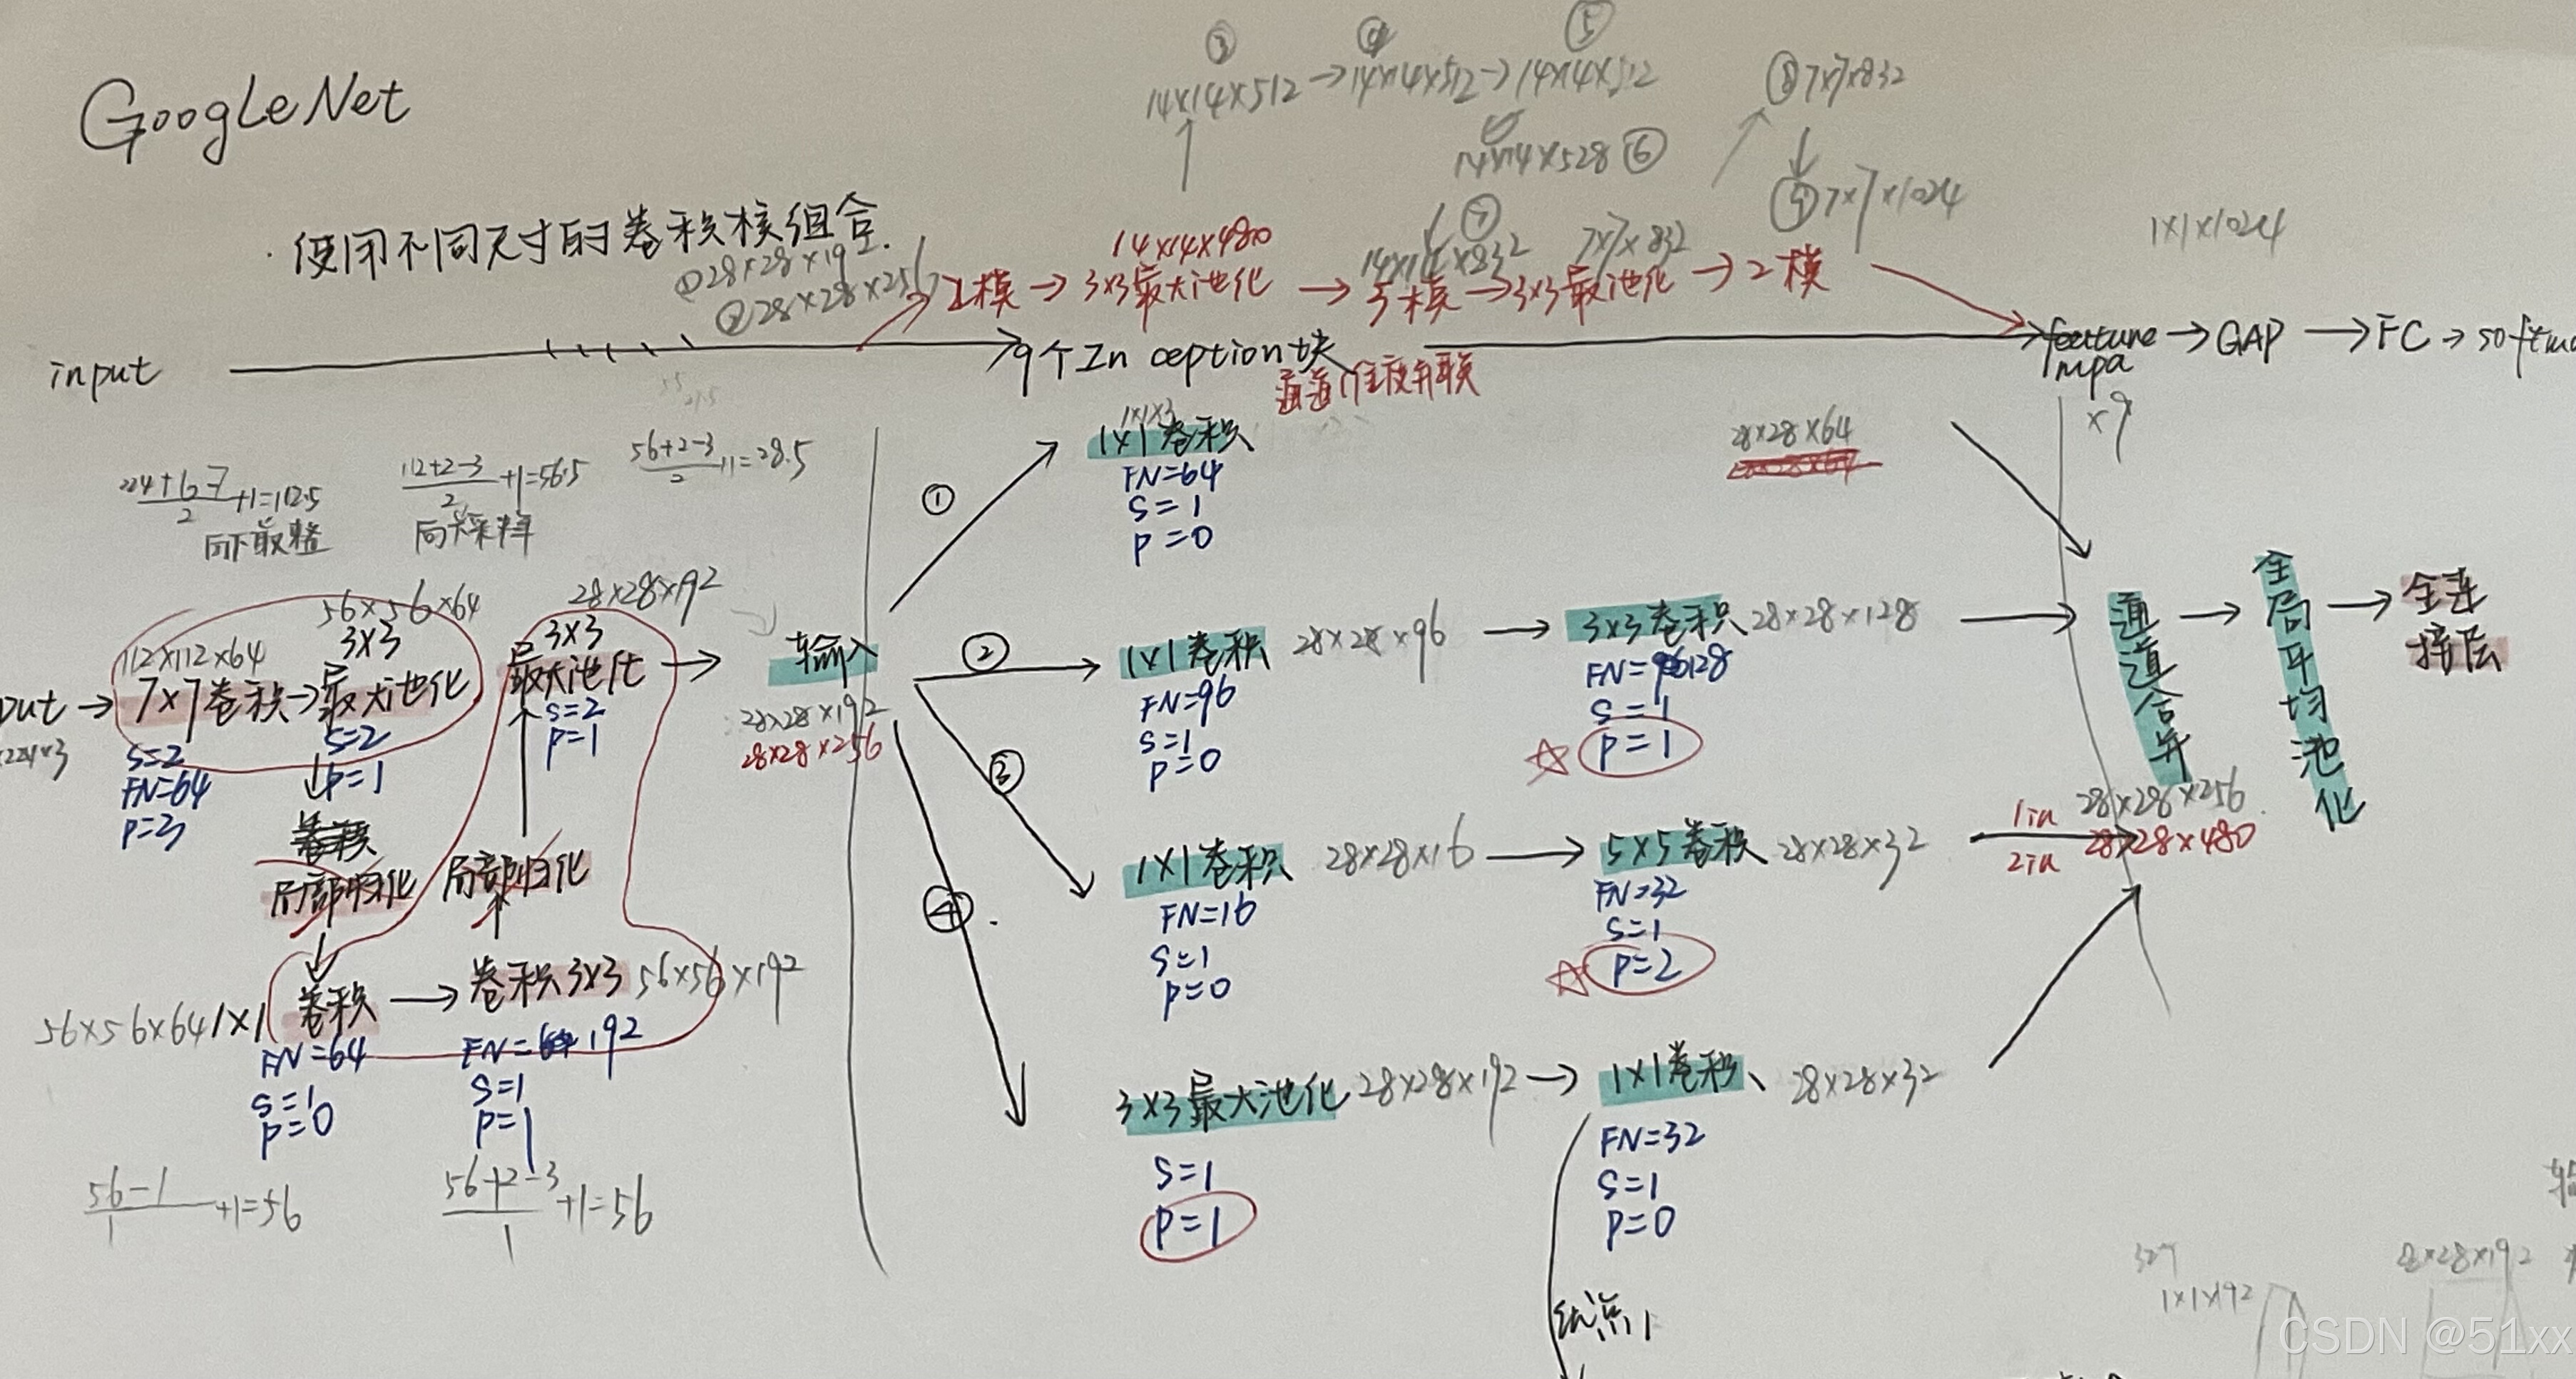 GoogLeNet
③ ④ ⑤
14×14×512→14×14×512→14×14×512
⑧7×7×832
14×14×528⑥
⑨7×7×1024
·使用不同尺寸的卷积核组合.
①28×28×192
②28×28×256
⑦
14×14×480
14×14×832
7×7×832
1×1×1024
2模→3×3最大池化→5模→3×3最大池化→2模
input
9个Inception块
feature mpa
→GAP→FC→softma
通道维度并联
×9
224+6-7/2+1=112.5
向下取整
112+2-3/2+1=56.5
向下采样
56+2-3/2+1=28.5
①
1×1×3
1×1卷积
FN=64
S=1
P=0
28×28×64
56×56×64
28×28×192
112×112×64
3×3
3×3
put→7×7卷积→最大池化
最大池化→输入
×224×3
S=2
FN=64
P=3
S=2
P=1
S=2
P=1
28×28×192
28×28×256
卷积
局部归化
局部归化
56×56×64 1×1卷积→卷积3×3 56×56×192
FN=64
S=1
P=0
FN=64 192
S=1
P=1
56-1/1+1=56
56+2-3/1+1=56
②
1×1卷积 28×28×96→3×3卷积28×28×128
FN=96
S=1
P=0
FN=96128
S=1
P=1
③
1×1卷积 28×28×16→5×5卷积 28×28×32
FN=16
S=1
P=0
FN=32
S=1
P=2
④
3×3最大池化28×28×192→1×1卷积、28×28×32
S=1
P=1
FN=32
S=1
P=0
通道合并
→
全局平均池化
→
全连接层
1in 28×28×256
2in 28×28×480
28×28×192
1×1×192
CSDN @51xx